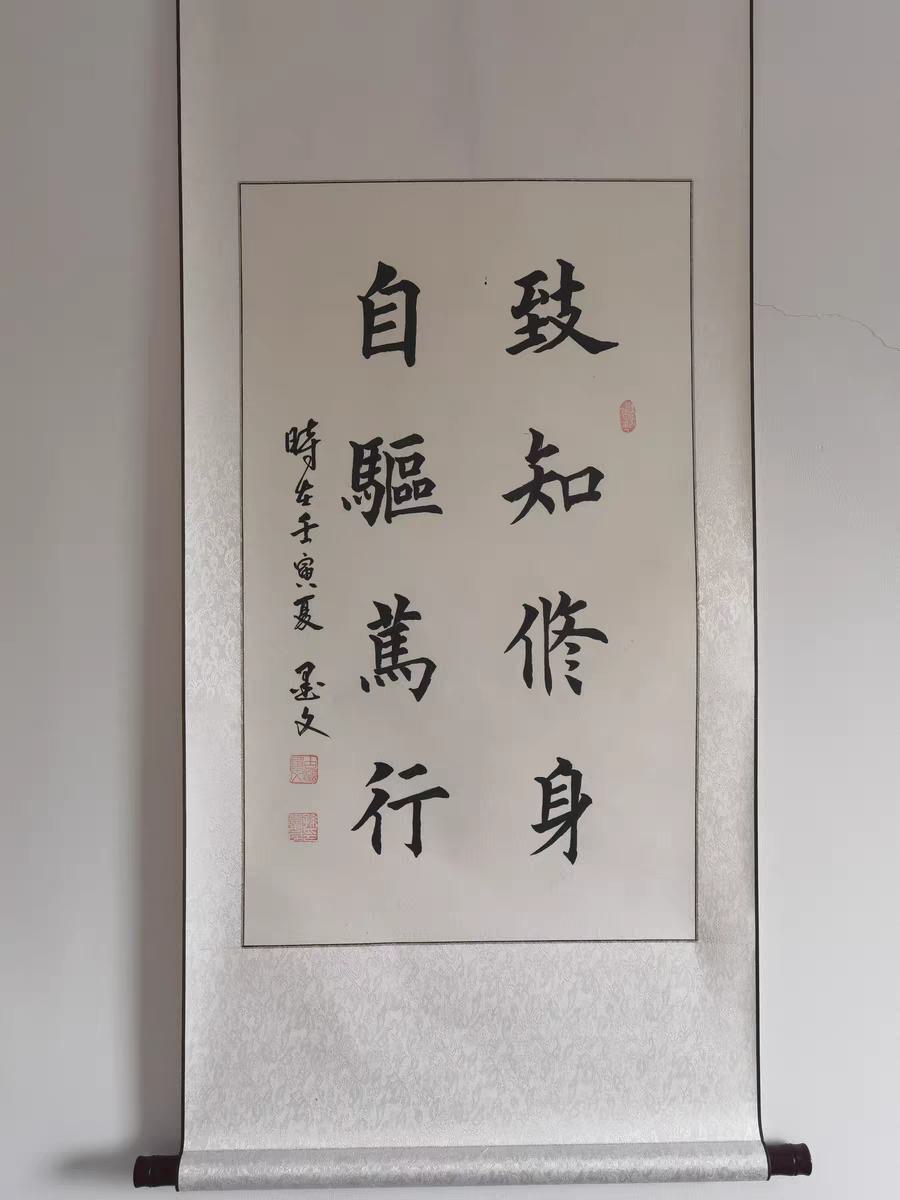 致知修身
自驅篤行
時在壬寅夏 墨文